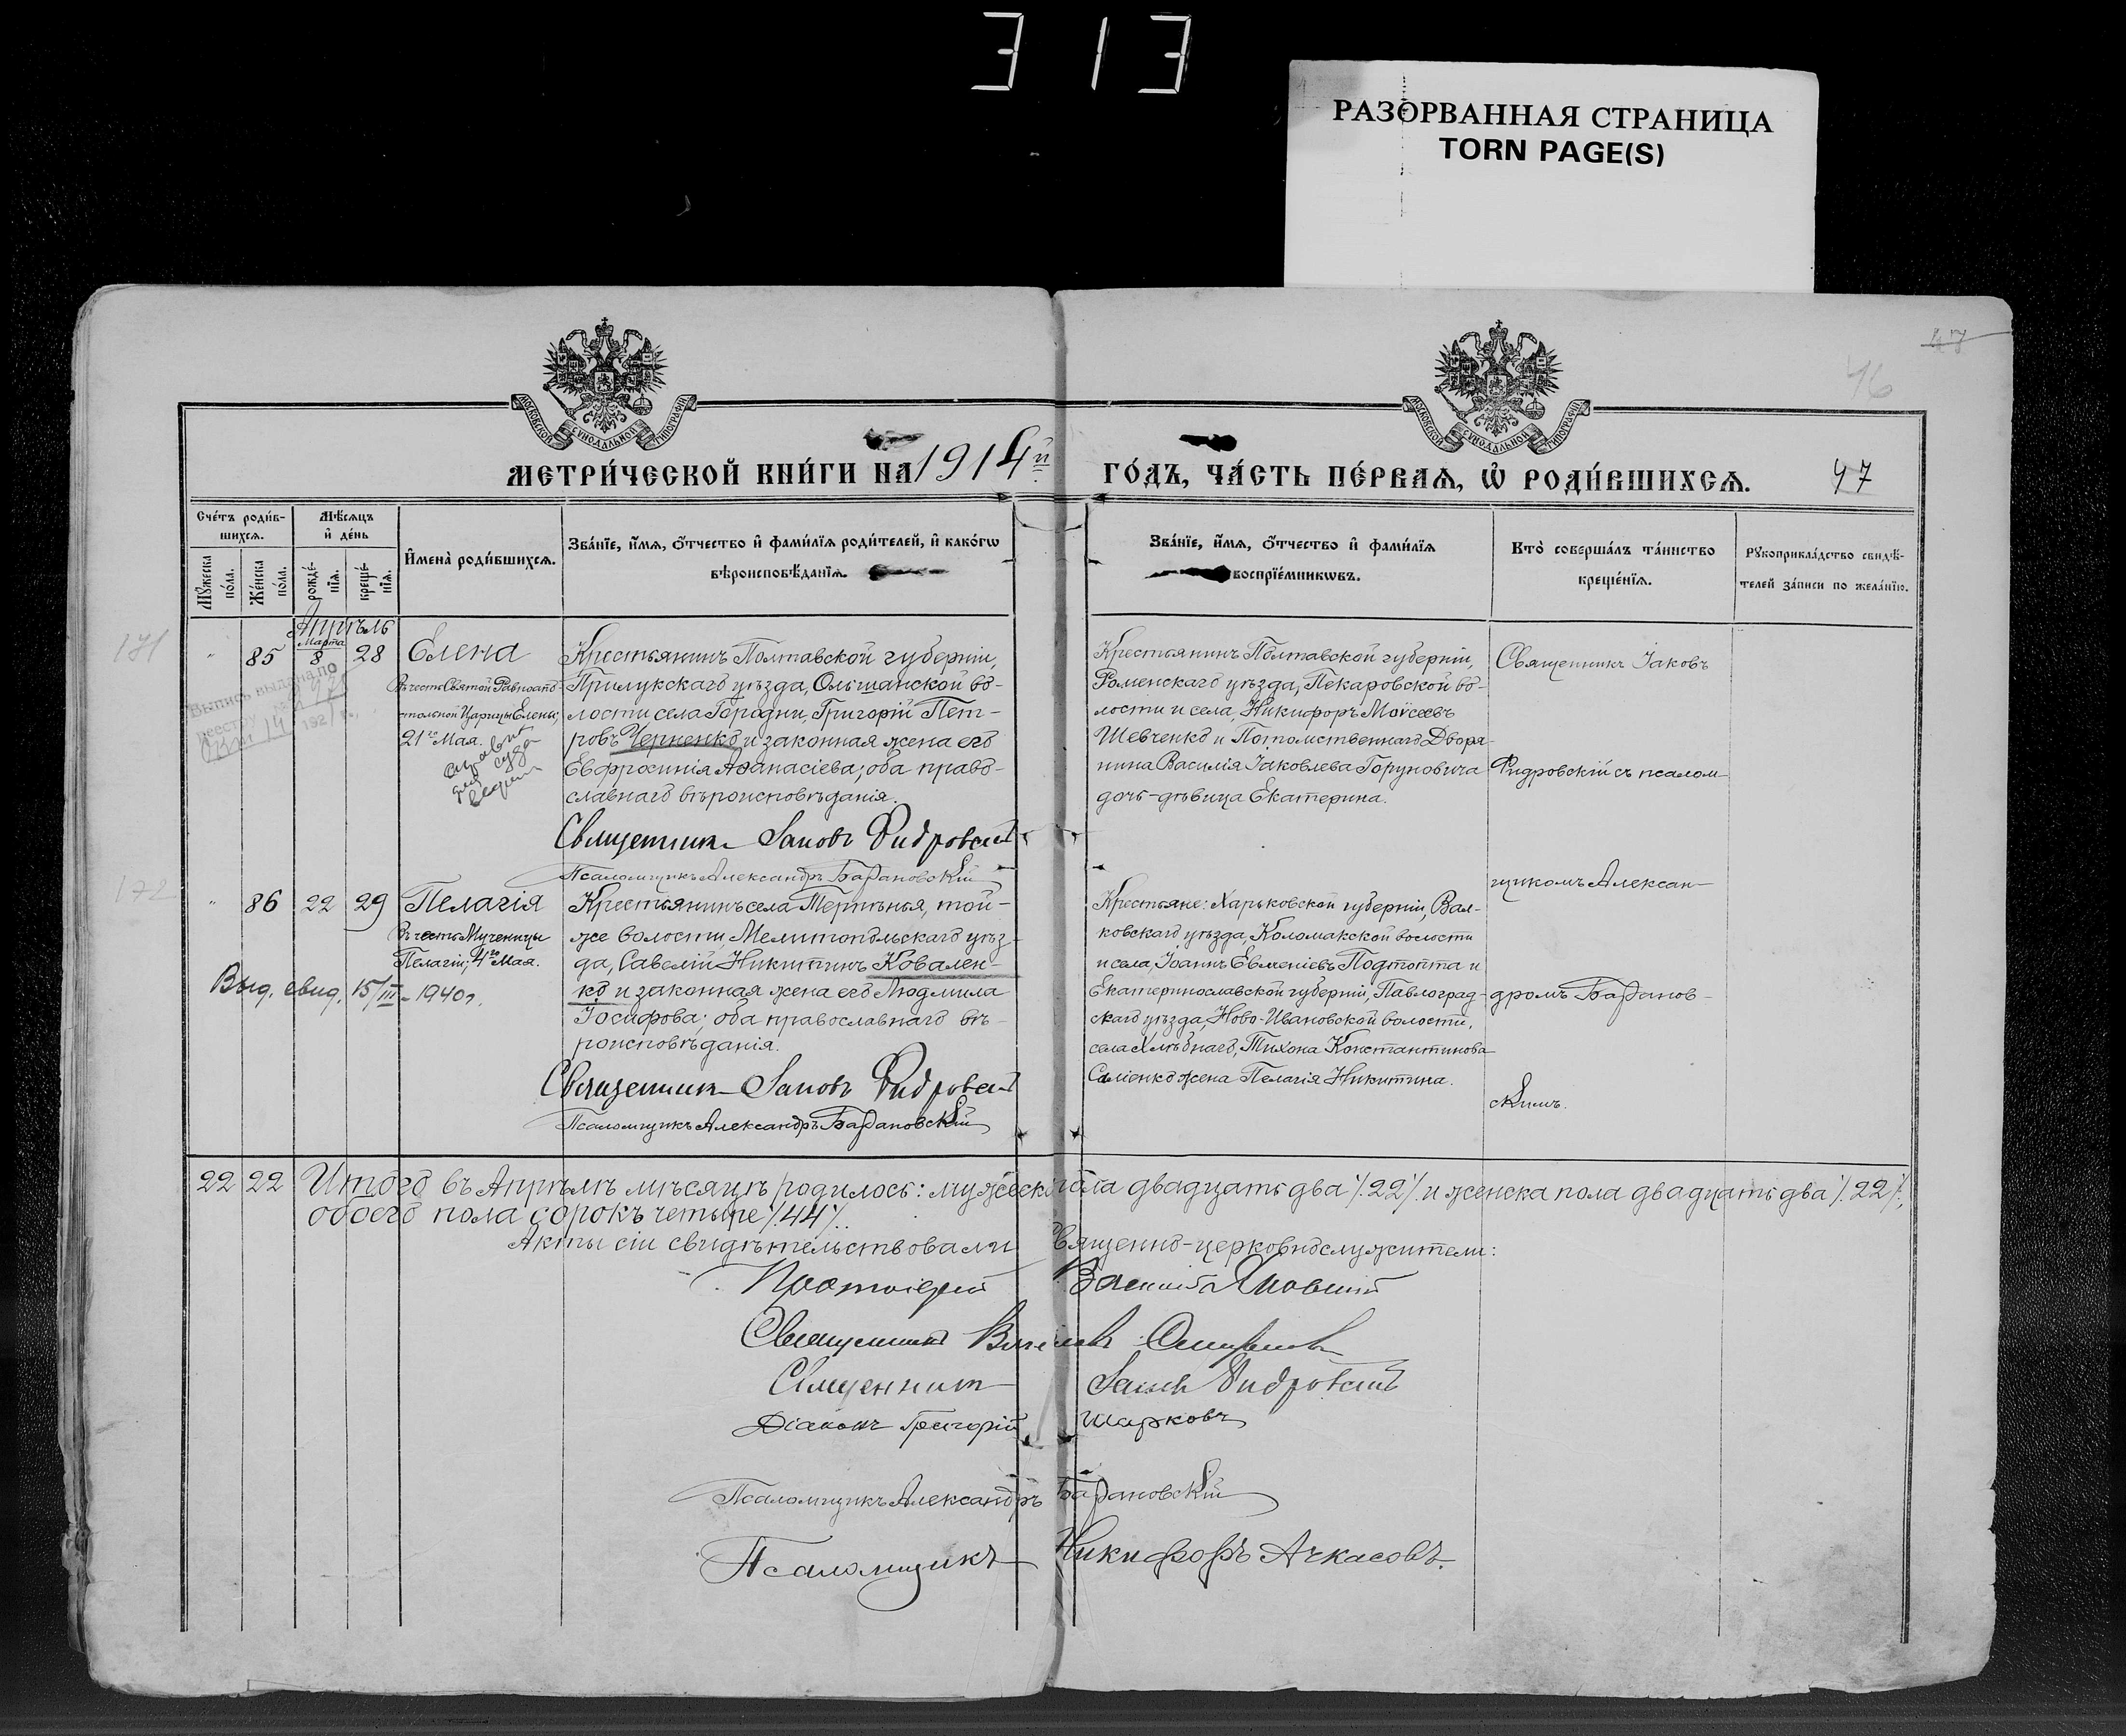 313
РАЗОРВАННАЯ СТРАНИЦА
TORN PAGE(S)
47
46
МОСКОВСКОЙ СѴНОДАЛЬНОЙ ТИПОГРАФІИ
МОСКОВСКОЙ СѴНОДАЛЬНОЙ ТИПОГРАФІИ
МЕТРИ́ЧЕСКОЙ КНИ́ГИ НА 1914й ГО́ДЪ, ЧА́СТЬ ПЕ́РВАѦ, Ѡ РОДИ́ВШИХСѦ. 47
Сче́тъ роди́в-
шихсѧ.
Мꙋ́жеска по́ла.
Же́нска по́ла.
Мѣ́сѧцъ
и҆ де́нь
рожде́-
нїѧ.
креще́-
нїѧ.
И҆мена̀ роди́вшихсѧ.
Зва́нїе, и҆́мѧ, о҆́тчество и҆ фами́лїѧ роди́телей, и҆ како́гѡ
вѣроисповѣ́данїѧ.
Зва́нїе, и҆́мѧ, о҆́тчество и҆ фами́лїѧ
воспрїе́мникѡвъ.
Кто̀ соверша́лъ та́инство
креще́нїѧ.
Рꙋкоприкла́дство свидѣ́-
телей за́писи по жела́нїю.
171
Апрѣль
Марта
" 85 8 28 Елена
Въ честь Святой Равноапо-
стольной Царицы Елены;
21го Мая.
Выпись выдана по
реестру
192
Крестьянинъ Полтавской губерніи,
Прилукскаго уѣзда, Ольшанской во-
лости, села Городни, Григорій Пет-
ровъ Черненко и законная жена его
Евфросинія Аѳанасіева; оба право-
славнаго вѣроисповѣданія.
Священникъ Іаковъ Фидровскій
Псаломщикъ Александръ Барановскій
Крестьянинъ Полтавской губерніи,
Роменскаго уѣзда, Пекаровской во-
лости и села, Никифоръ Моѵсеевъ
Шевченко и Потомственнаго Дворя-
нина Василія Іаковлева Горуновича
дочь-дѣвица Екатерина.
Священникъ Іаковъ
Фидровскій съ псалом-
щикомъ Алексан-
дромъ Баранов-
скимъ.
172
" 86 22 29 Пелагія
Въ честь Мученицы
Пелагіи; 4го Мая.
Выд. свид. 15/III - 1940г.
Крестьянинъ села Терпѣнья, той-
же волости, Мелитопольскаго уѣз-
да, Савелій Никитинъ Ковален-
ко и законная жена его Людмила
Іосифова; оба православнаго вѣ-
роисповѣданія.
Священникъ Іаковъ Фидровскій
Псаломщикъ Александръ Барановскій
Крестьяне: Харьковской губерніи, Вал-
ковскаго уѣзда, Коломакской волости
и села, Іоаннъ Евменіевъ Подтопта и
Екатеринославской губерніи, Павлоград-
скаго уѣзда, Ново-Ивановской волости,
села Хлѣбнаго, Тихона Константинова
жена Пелагія Никитина.
22 22 Итого въ Апрѣлѣ мѣсяцѣ родилось: мужеска пола двадцать два /.22/. и женска пола двадцать два /.22/.,
обоего пола сорокъ четыре /.44/.
Акты сіи свидѣтельствовали Священно-церковнослужители:
Протоіерей Василій Яновскій
Священникъ
Священникъ Іаковъ Фидровскій
Діаконъ Григорій Шарковъ
Псаломщикъ Александръ Барановскій
Псаломщикъ Никифоръ Ачкасовъ.